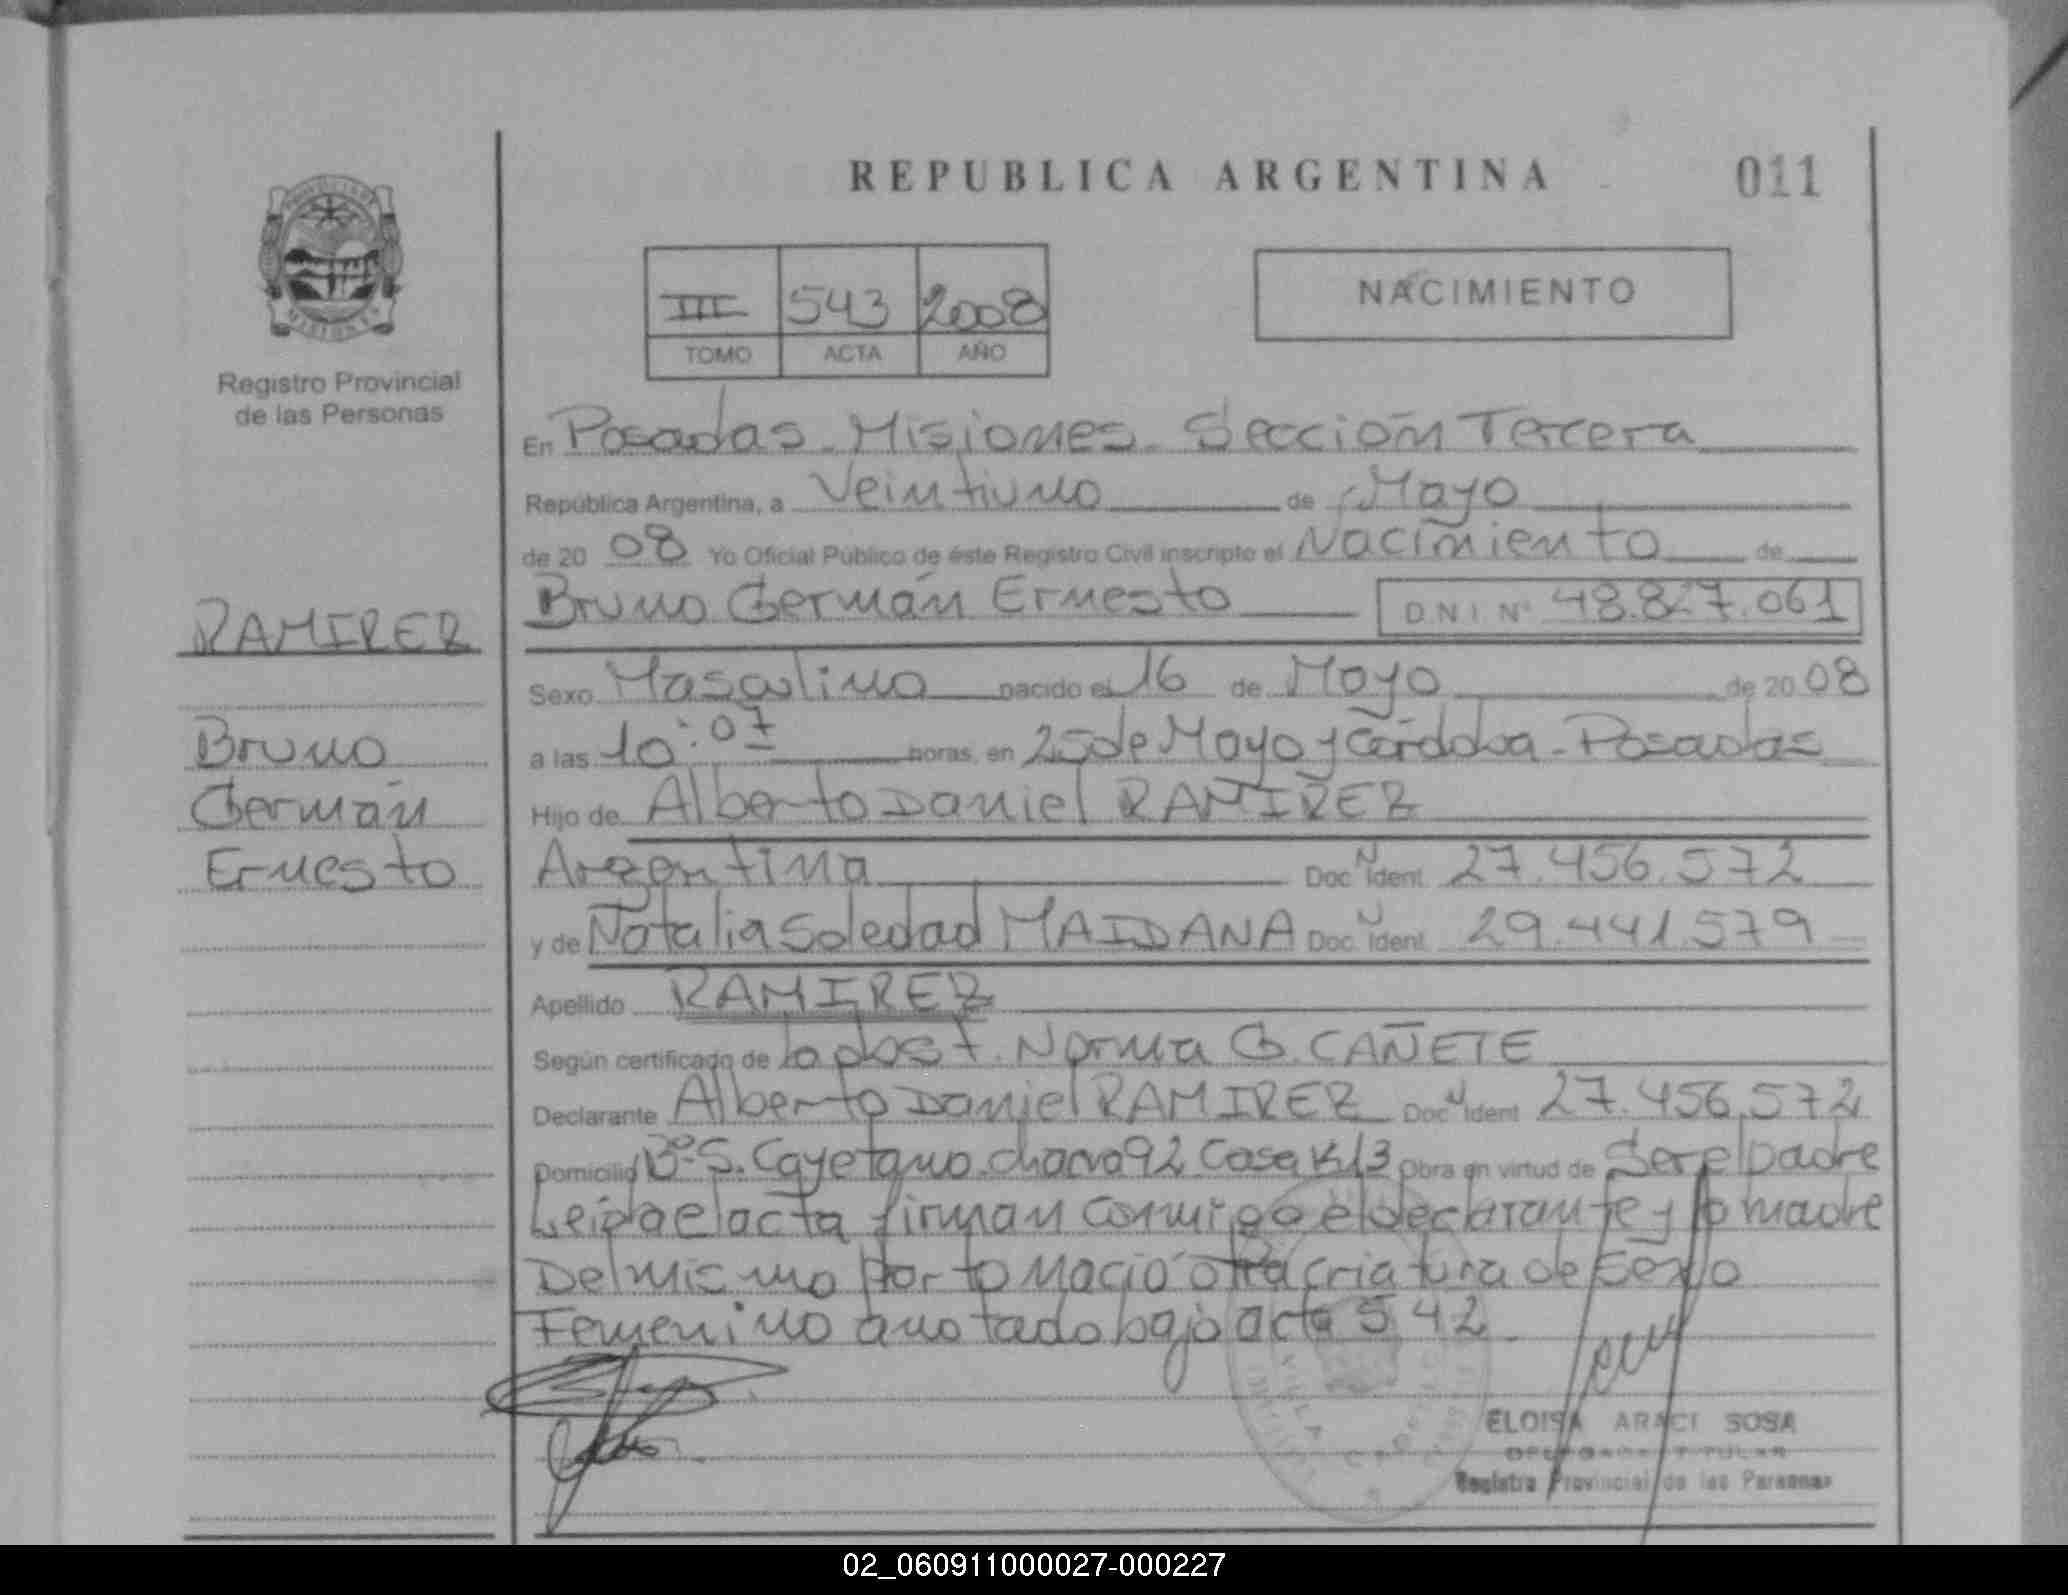 REPUBLICA ARGENTINA
011
III 543 2008
TOMO ACTA AÑO
NACIMIENTO
Registro Provincial
de las Personas
En Posadas - Misiones - Sección Tercera
República Argentina, a Veintiuno de Mayo
de 20 08 Yo Oficial Público de éste Registro Civil inscripto el Nacimiento de
Bruno Germán Ernesto D.N.I. Nº 48.827.061
RAMIREZ
Sexo Masculino nacido el 16 de Mayo de 20 08
Bruno
a las 10:07 horas, en 25 de Mayo y Córdoba - Posadas
Germán
Hijo de Alberto Daniel RAMIREZ
Ernesto
Argentina Doc N Ident 27.456.572
y de Natalia Soledad MAIDANA Doc. N Ident 29.441.579
Apellido RAMIREZ
Según certificado de la obst. Norma G. CAÑETE
Declarante Alberto Daniel RAMIREZ Doc N Ident 27.456.572
Domicilio Bº S. Cayetano chacra 92 Casa K13 Obra en virtud de Ser el padre
Leida el acta firman conmigo el declarante y la madre
Del mismo parto nació otra criatura de sexo
Femenino anotado bajo acta 542
ELOISA ARACI SOSA
DELEGADA TITULAR
Registro Provincial de las Personas
02_060911000027-000227